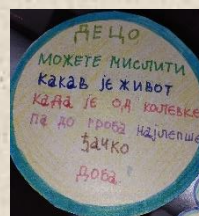 ДЕЦО
МОЖЕТЕ МИСЛИТИ
КАКАВ ЈЕ ЖИВОТ
КАДА ЈЕ ОД КОЛЕВКЕ
ПА ДО ГРОБА НАЈЛЕПШЕ
ЂАЧКО
ДОБА